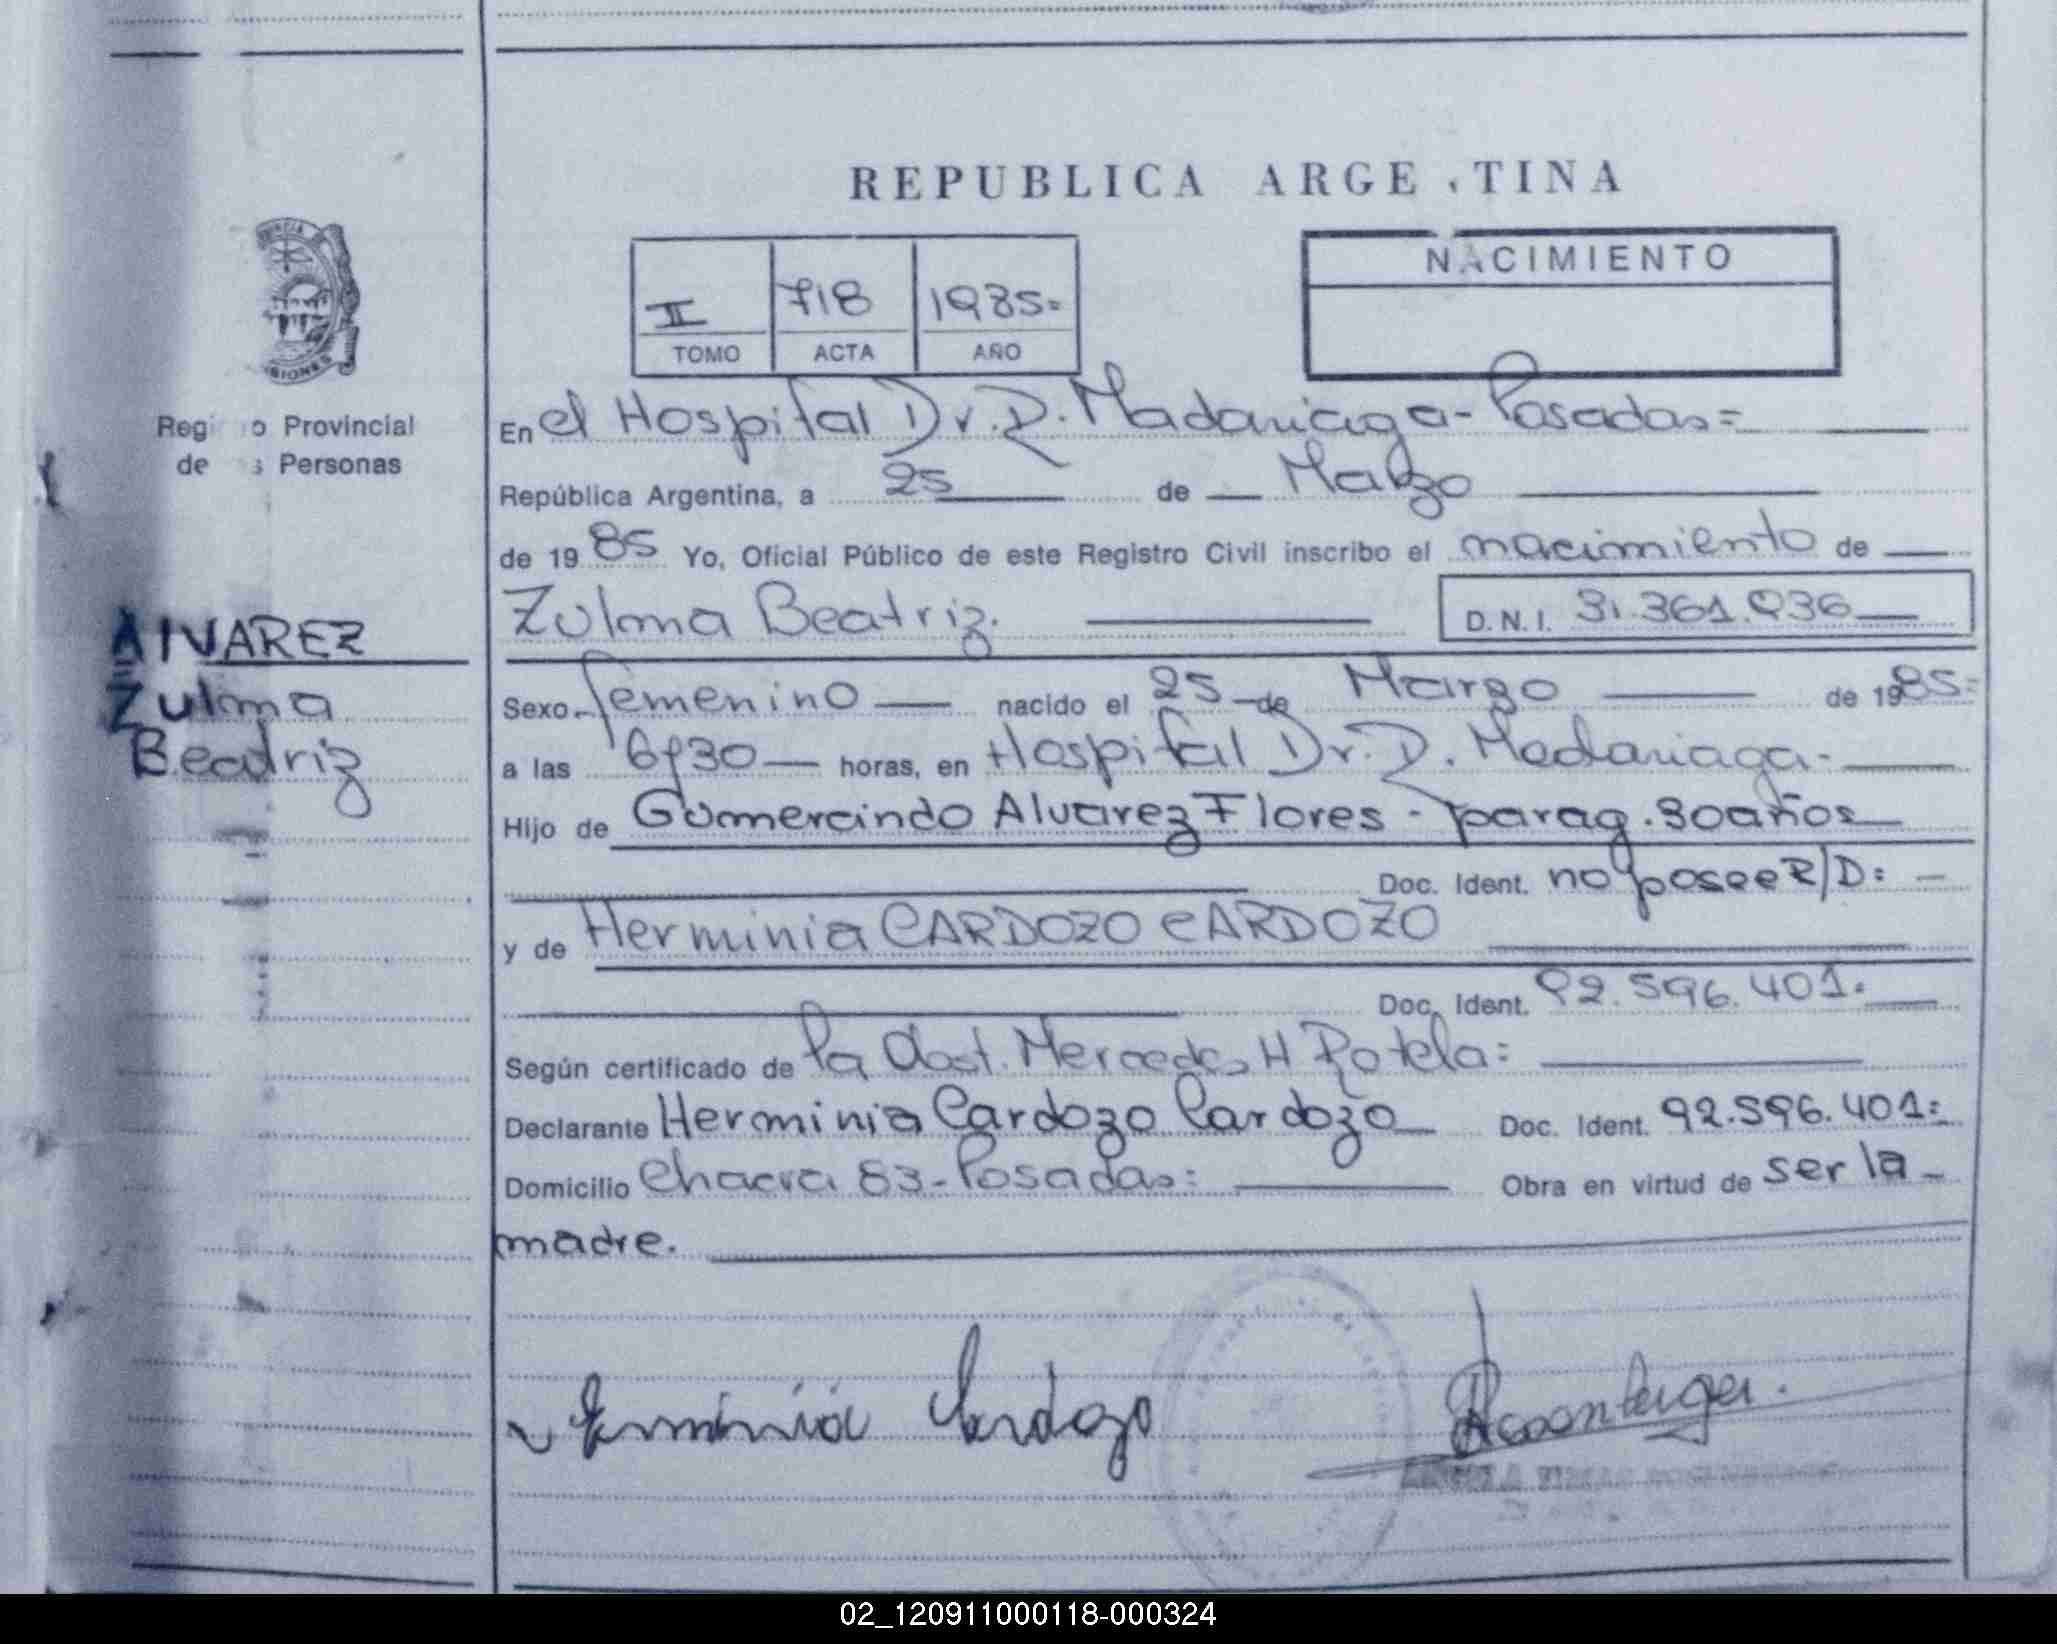 REPUBLICA ARGE TINA
NACIMIENTO
II 718 1985=
TOMO ACTA AÑO
Provincial
de Personas
ALVAREZ
Zulma
Beatriz
En el Hospital Dr. R. Madariaga - Posadas=
República Argentina, a 25 de Marzo
de 1985 Yo, Oficial Público de este Registro Civil inscribo el nacimiento de
Zulma Beatriz. D.N.I. 31.361.936
Sexo femenino nacido el 25 de Marzo de 1985=
a las 6y30 horas, en Hospital Dr. R. Madariaga-
Hijo de Gumercindo Alvarez Flores - parag. 30 años
Doc. Ident. no posee R/D:
y de Herminia CARDOZO CARDOZO
Doc. Ident. 92.596.401.
Según certificado de la Obst. Mercedes H Rotela:
Declarante Herminia Cardozo Cardozo Doc. Ident. 92.596.401:
Domicilio Chacra 83 - Posadas: Obra en virtud de ser la
madre.
Erminia Cardozo
02_120911000118-000324